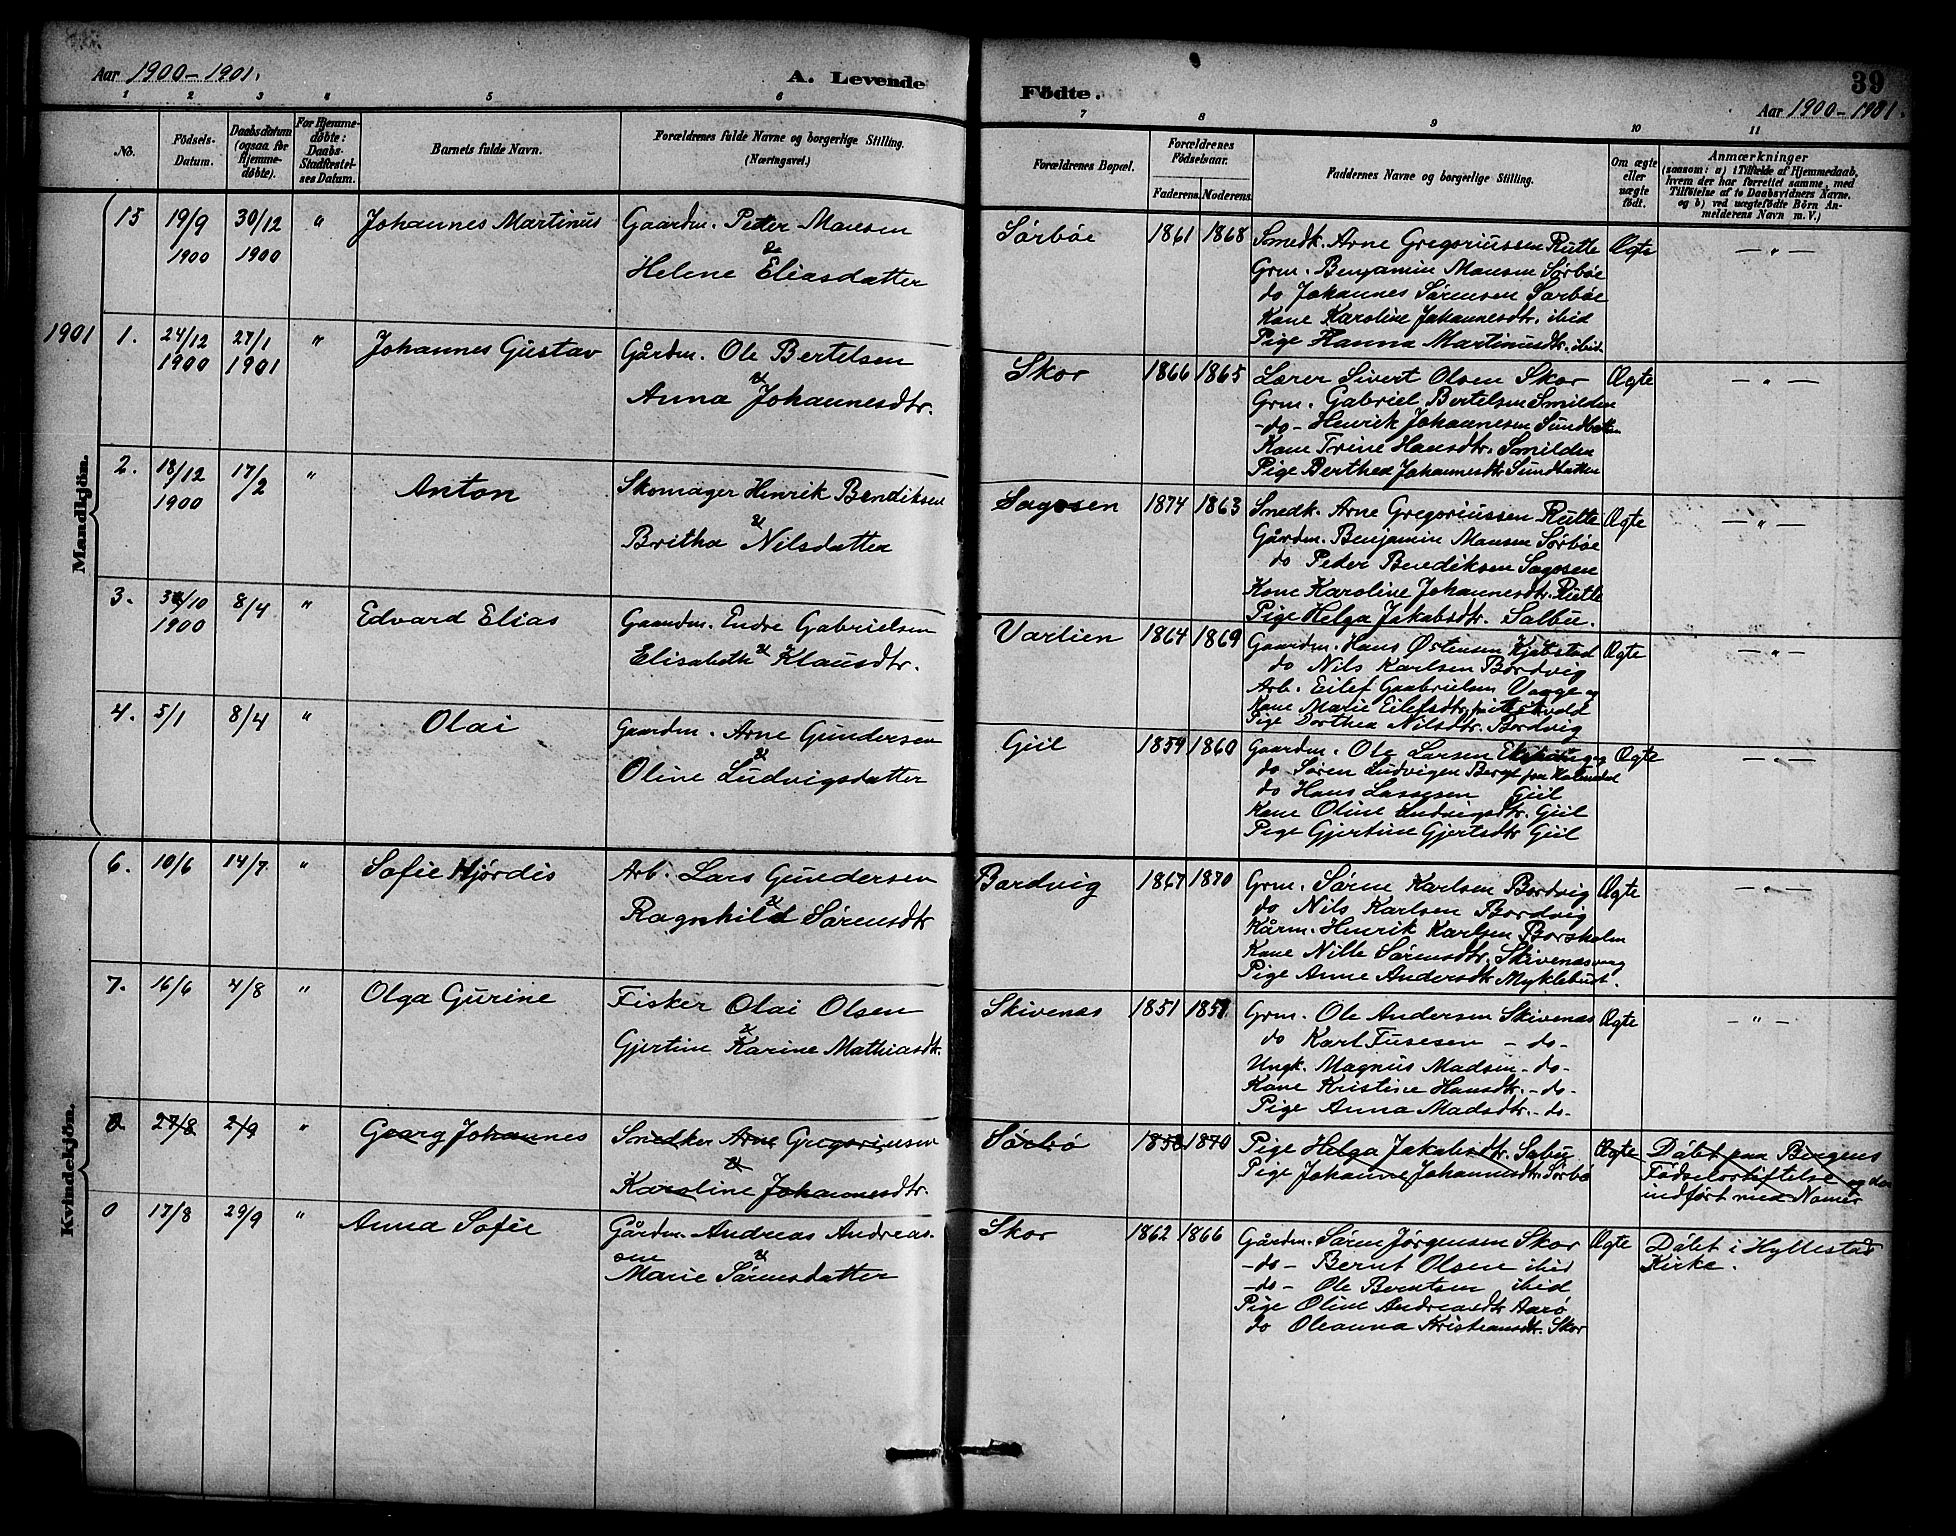 Aar 1900-1901.
A. Levende
Fødte.
39
Aar 1900-1901.
1 2 3 4 5 6 7 8 9 10 11
No.
Fødsels-Datum.
Daabsdatum (ogsaa for Hjemme-døbte).
For Hjemme-døbte: Daabs-Stadfæstel-ses Datum.
Barnets fulde Navn.
Forældrenes fulde Navne og borgerlige Stilling. (Næringsvei.)
Forældrenes Bopæl.
Forældrenes Fødselsaar.
Faderens. Moderens.
Faddernes Navne og borgerlige Stilling.
Om ægte eller uægte født.
Anmærkninger
(saasom: a) i Tilfælde af Hjemmedaab, hvem der har forrettet samme, med Tilføielse af to Daabsvidners Navne, og b) ved uægtefødte Børn An-melderens Navn m. V.)
Mandkjön.
15 19/9 1900 30/12 1900 " Johannes Martinus
Gaardm. Peder Monsen
&
Helene Eliasdatter
Sørbøe 1861 1868
Smedk. Arne Gregoriussen Rutle
Grm. Benjamin Monsen Sørbøe
do Johannes Sørensen Sørbøe
Kone Karoline Johannesdtr. ibid
Pige Hanna Martinusdtr. ibid.
Ægte — " —
1901 1. 24/12 1900 27/1 1901 " Johannes Gustav
Gårdm. Ole Bertelsen
&
Anna Johannesdtr.
Skor 1866 1865
Lærer Sivert Olsen Skor
Grm. Gabriel Bertelsen Smilden
-do- Henrik Johannesen
Kone Trine Hansdtr. Smilden
Pige Berthea Johannesdtr
Ægte — " —
2. 18/12 1900 17/2 " Anton
Skomager Henrik Bendiksen
&
Britha Nilsdatter
Sagosen 1874 1863
Snedk. Arne Gregoriussen Rutle
Gårdm. Benjamin Monsen Sørbøe
do Peder Bendiksen Sagosen
Kone Karoline Johannesdtr. Rutle
Pige Helga Jakobsdtr. Salbu.
Ægte — " —
3. /10 1900 8/4 " Edvard Elias
Gaardm. Endre Gabrielsen
&
Elisabeth Klausdtr.
Varlien 1864 1869
Gaardm. Hans Østensen
do Nils Karlsen Bordvig
Arb. Eilef Gabrielsen Vaage og
Kone Marie Eilefsdtr.
Pige Dorthea Nilsdtr. Bordvig
Ægte — " —
4. 5/1 8/4 " Olai
Gaardm. Arne Gundersen
&
Oline Ludvigsdatter
Giil 1854 1860
Gaardm. Ole Larsen
do Søren Ludvigsen Berge
do Hans Lassesen Giil
Kone Oline Ludvigsdtr. Giil
Pige Gjertine Gjertsdtr Giil
Ægte — " —
Kvindekjön.
6. 10/6 14/7. " Sofie Hjørdis
Arb. Lars Gundersen
&
Ragnhild Sørensdtr
Bordvig 1867 1870
Grm. Søren Karlsen Bordvig
do Nils Karlsen Bordvig
Kårm. Henrik Karlsen Borsholm
Kone Nille Sørensdtr. Skivenæsvaag
Pige Anne Andersdtr Myklebust.
Ægte — " —
7. 16/6 4/8 " Olga Gurine
Fisker Olai Olsen
&
Gjertine Karine Mathiasdtr.
Skivenæs 1851
Grm. Ole Andersen Skivenæs
do Karl Fusesen -do-
Ungk. Magnus Madsen -do-
Kone Kristine Hansdtr. -do-
Pige Anna Madsdtr. -do-
Ægte — " —
0. 27/8 2/9 " Georg Johannes
Snedker Arne Gregoriussen
&
Karoline Johannesdtr.
Sørbø 1858 1870
Pige Helga Jakobsdtr. Salbu
Pige Johanne Johannesdtr. Sørbø
Ægte
Døbt paa Bergens
Fødselsstiftelse og der
indført med Namer
0 17/8 29/9 " Anna Sofie
Gårdm. Andreas Andreas-
sen &
Marie Sørensdatter
Skor 1862 1866
Gårdm. Søren Jørgensen Skor
-do- Bernt Olsen ibid
-do- Ole Berntsen ibid
Pige Oline Andreasdtr Aarø
do Oleanna Kristiansdtr. Skor
Ægte
Døbt i Hyllestad
Kirke.